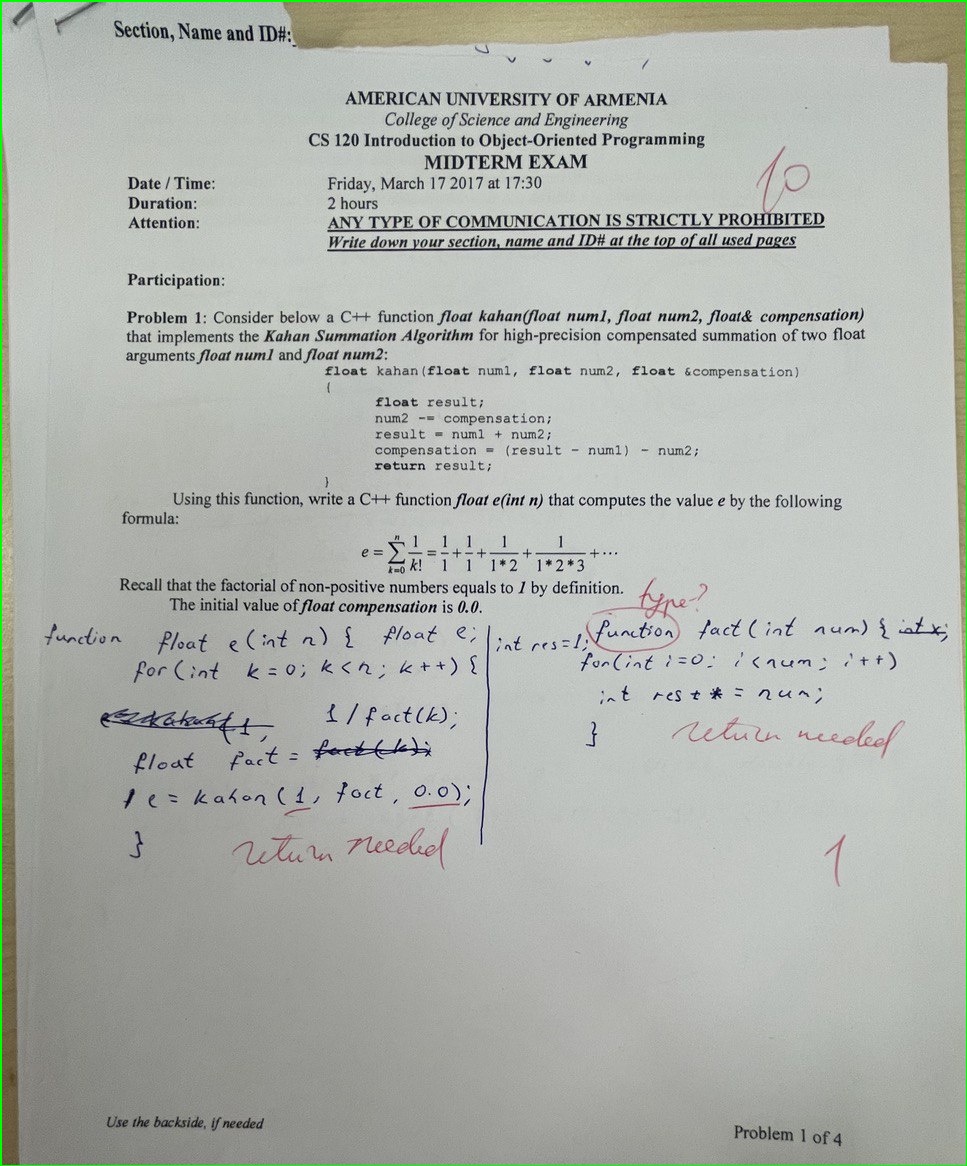 Section, Name and ID#:
AMERICAN UNIVERSITY OF ARMENIA
College of Science and Engineering
CS 120 Introduction to Object-Oriented Programming
MIDTERM EXAM
10
Date / Time: Friday, March 17 2017 at 17:30
Duration: 2 hours
Attention: ANY TYPE OF COMMUNICATION IS STRICTLY PROHIBITED
Write down your section, name and ID# at the top of all used pages
Participation:
Problem 1: Consider below a C++ function float kahan(float num1, float num2, float& compensation)
that implements the Kahan Summation Algorithm for high-precision compensated summation of two float
arguments float num1 and float num2:
float kahan(float num1, float num2, float &compensation)
{
float result;
num2 -= compensation;
result = num1 + num2;
compensation = (result - num1) - num2;
return result;
}
Using this function, write a C++ function float e(int n) that computes the value e by the following
formula:
e = ∑ⁿₖ₌₀ 1/k! = 1/1 + 1/1 + 1/1*2 + 1/1*2*3 + ···
Recall that the factorial of non-positive numbers equals to 1 by definition.
The initial value of float compensation is 0.0.
function float e(int n) { float e;
for(int k=0; k<n; k++) {
1/fact(k);
float fact = fact(k);
e = kahan(1, fact, 0.0);
}
return needed
type?
int res=1; function fact(int num) { int x;
for(int i=0; i<num; i++)
int res * = num;
}
return needed
1
Use the backside, if needed
Problem 1 of 4